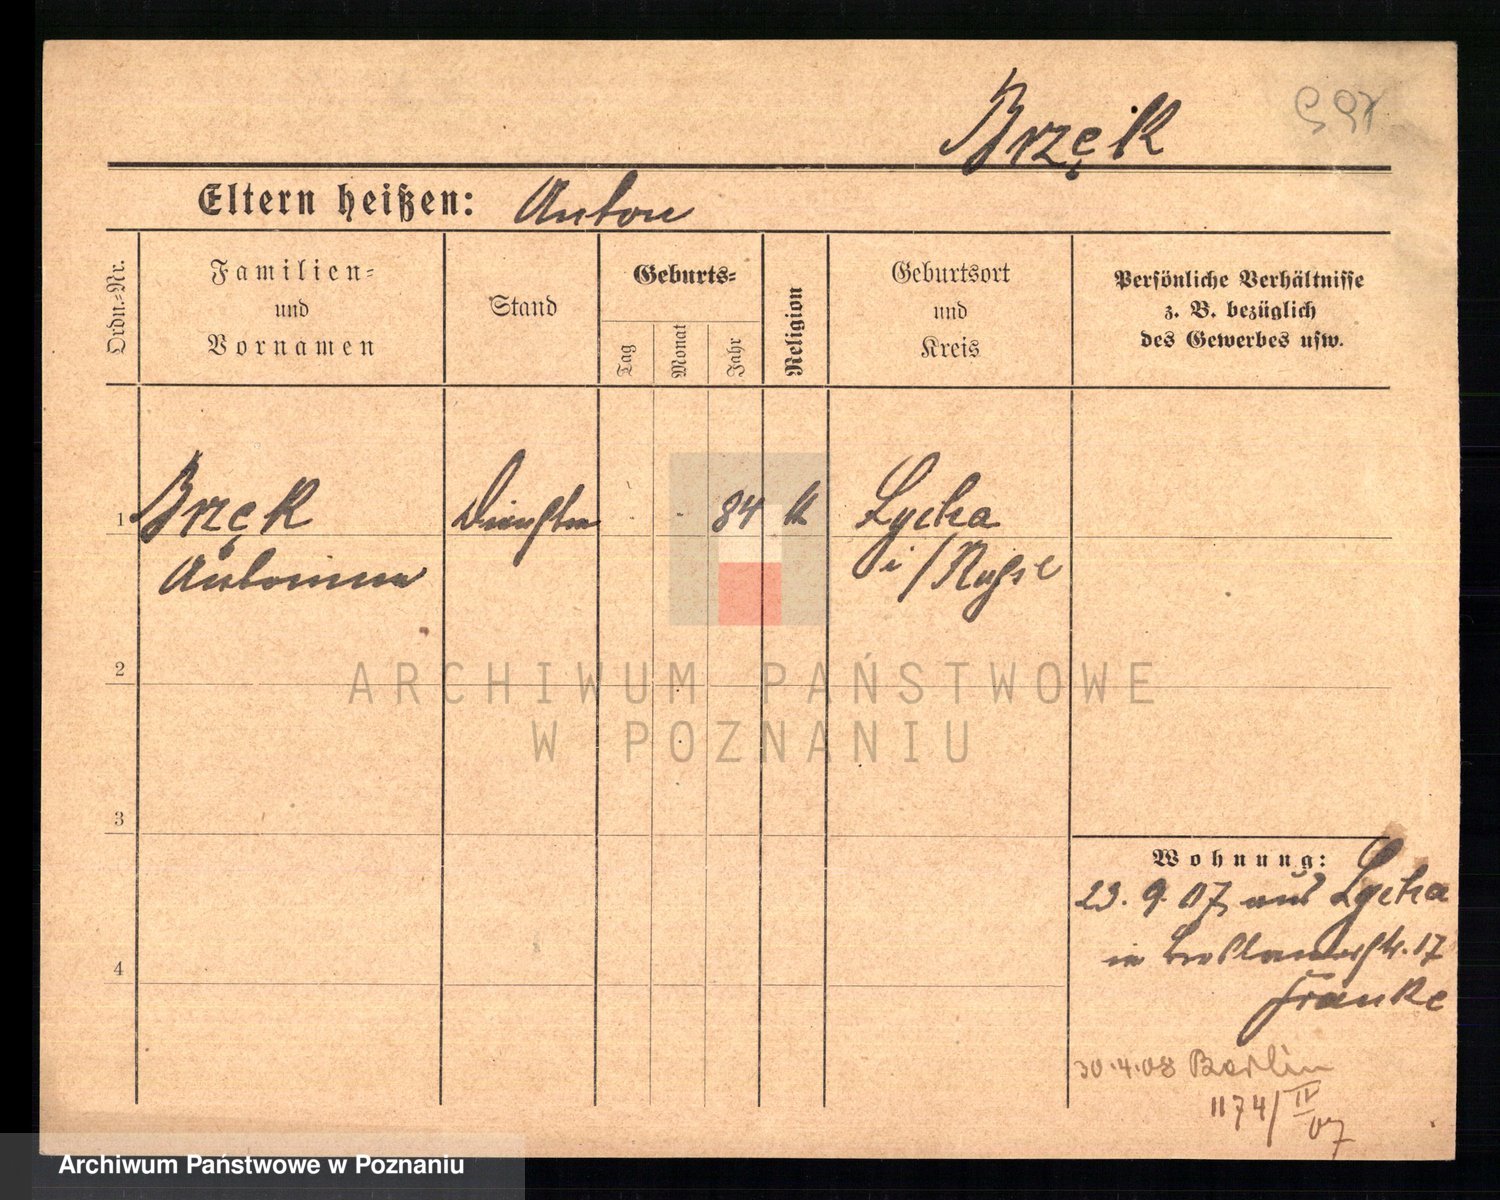 Brzęk
Eltern heißen: Anton
Ordn.-Nr.
Familien-
und
Vornamen
Stand
Geburts-
Tag
Monat
Jahr
Religion
Geburtsort
und
Kreis
Persönliche Verhältnisse
z. B. bezüglich
des Gewerbes usw.
1 Brzęk 84 k Lycha
Antonina i/Russl
2
ARCHIWUM PAŃSTWOWE
W POZNANIU
3
Wohnung:
23. 9. 07 aus Lycha
in 17
4
Franke
30.4.08 Berlin
1174/IV
07
Archiwum Państwowe w Poznaniu